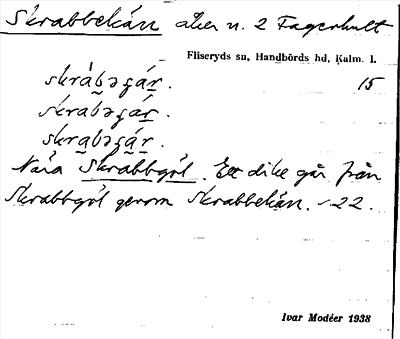 Skrabbekán åker n. 2 Fagerhult
Fliseryds sn, Handbörds hd, Kalm. l.
15
skràbəgár.
skrabəgár.
skrabəgár.
Nära Skrabbgöl. Ett dike går från
Skrabbgöl genom Skrabbekán. -22.
Ivar Modéer 1938